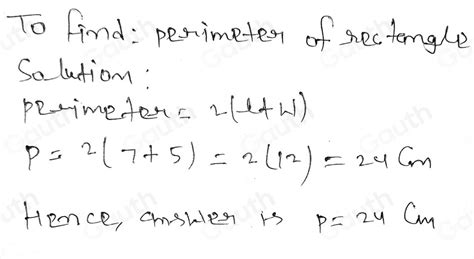 To find: perimeter of rectangle
Solution:
perimeter = 2(l+w)
P = 2(7+5) = 2(12) = 24 Cm
Hence, answer is P = 24 Cm